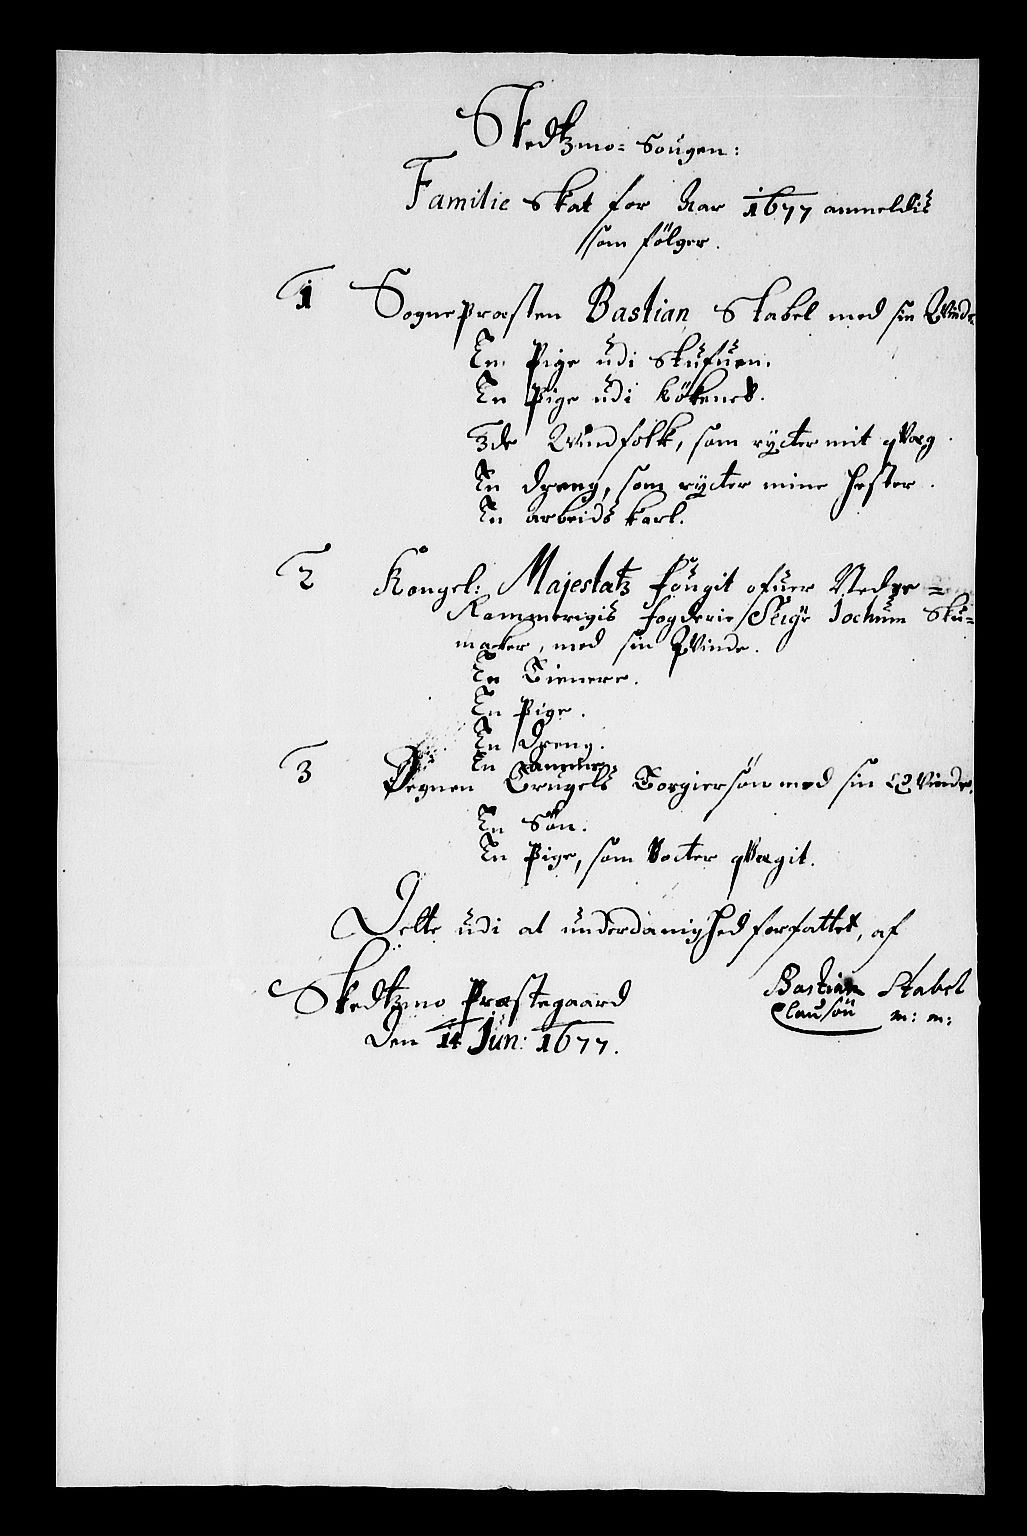 Skedtzmo= Sougen:
Familie Skat for Aar 1677 anmeldis
som følger.
1 Sognepræsten Bastian Stabel med sin Qvinde.
En Pige udi Stufuen.
En Pige udi Kökenet.
3de Qvindfolk, som rycter mit qvæg.
En dreng, som rycter mine hester.
En arbeids karl.
2 Kongel: Majestatz fougit ofuer Nedre=
Rommerigis fogderie Seigr Jochum Sku=
macker, med sin Qvinde.
En Tienere.
En Pige.
En dreng.
En amme.
3 Degnen Trugels Torgiersøn med sin Qvinde.
En Søn.
En Pige, som Vocter qvægit.
Dette udi al underdanighed forfattet, af
Skedtzmo Præstegaard
Bastian Stabel
Clausøn m: m:
Den 14 Jun: 1677.